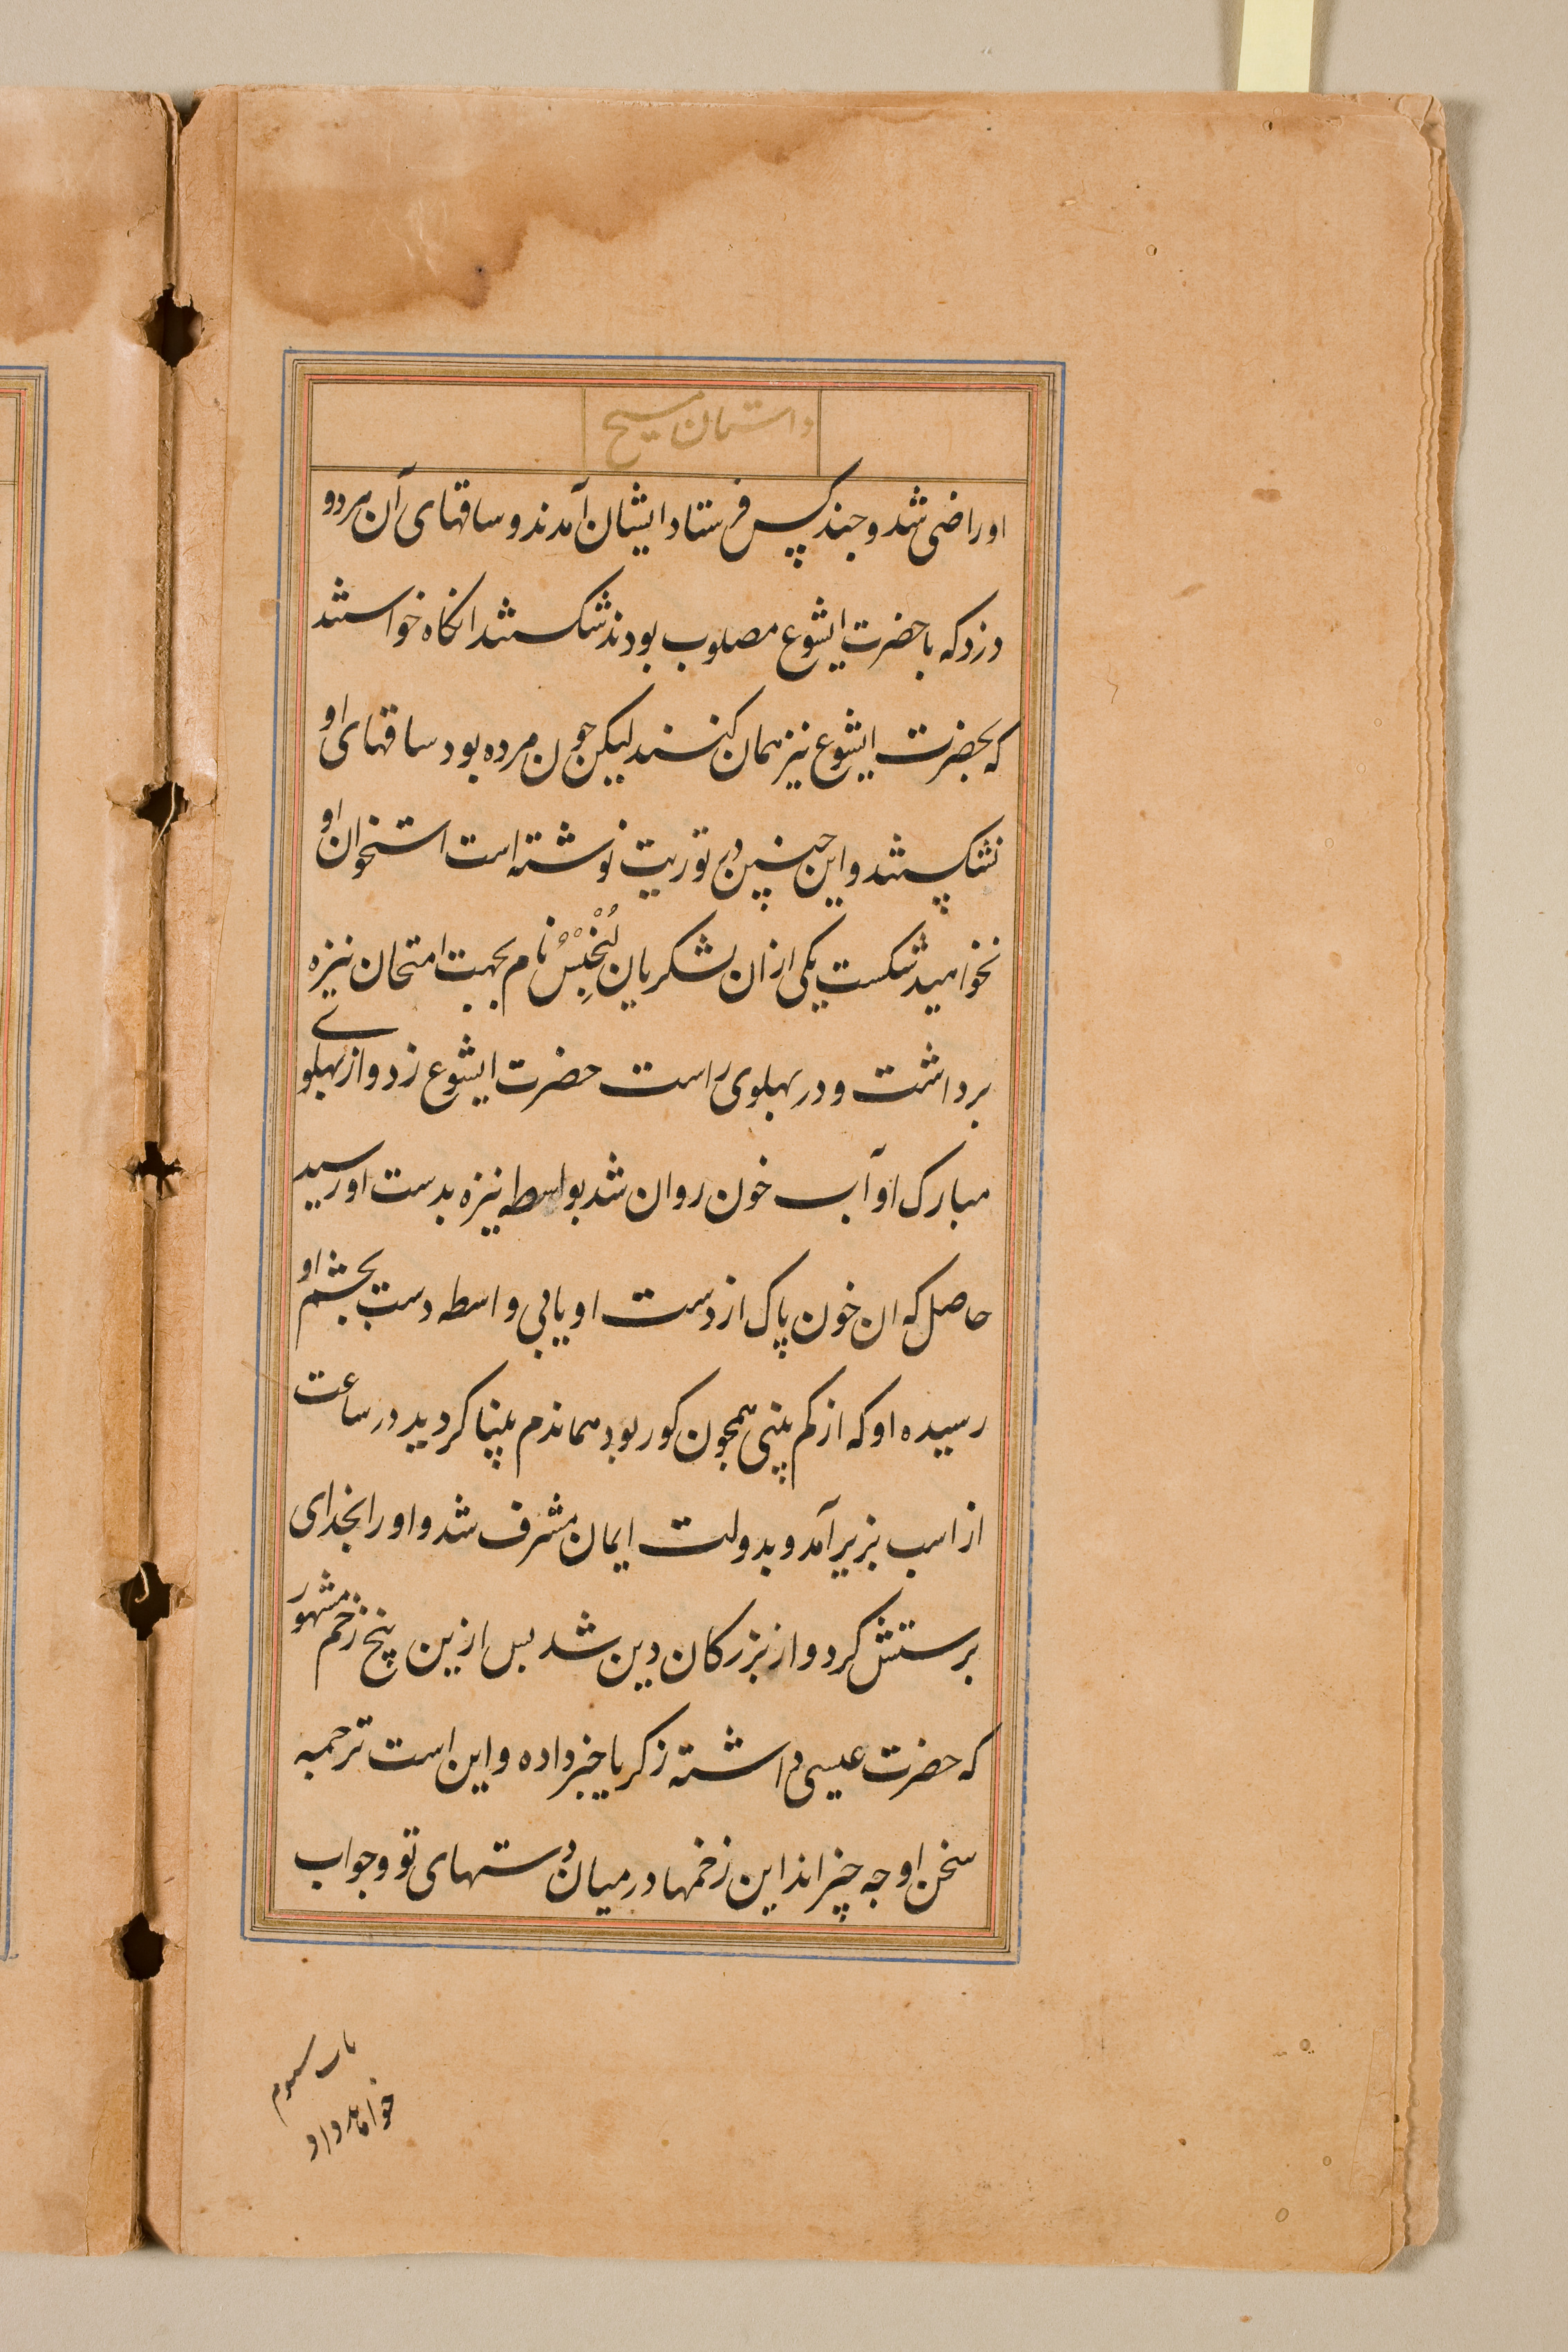 داستان مسیح
او راضی شد و جند کس فرستاد ایشان آمدند و ساقهای آن هر دو
دزد که با حضرت ایشوع مصلوب بودند شکستند انکاه خواستند
که بحضرت ایشوع نیز همان کنند لیکن جون مرده بود ساقهای او
نشکستند و این جنین در توریت نوشته است استخوان او
نخواهید شکست یکی از ان لشکریان لُنْجِنْسْ نام بجهت امتحان نیزه
برداشت و در بهلوی راست حضرت ایشوع زد و از بهلوے
مبارک او آب خون روان شد بواسطه نیزه بدست او رسید
حاصل که ان خون پاک از دست او یا بی واسطه دست بجشم او
رسیده او که از کم بینی همجون کور بود هماندم بینا کردید در ساعت
از اسب بزیر آمد و بدولت ایمان مشرف شد و او را بخدای
برستش کرد و از بزرکان دین شد بس ازین پنج زخم مشهور
که حضرت عیسی داشته زکریا خبر داده و این است ترجمه
سخن او جه چیز اند این زخمها در میان دستهای تو و جواب
خواهد داد